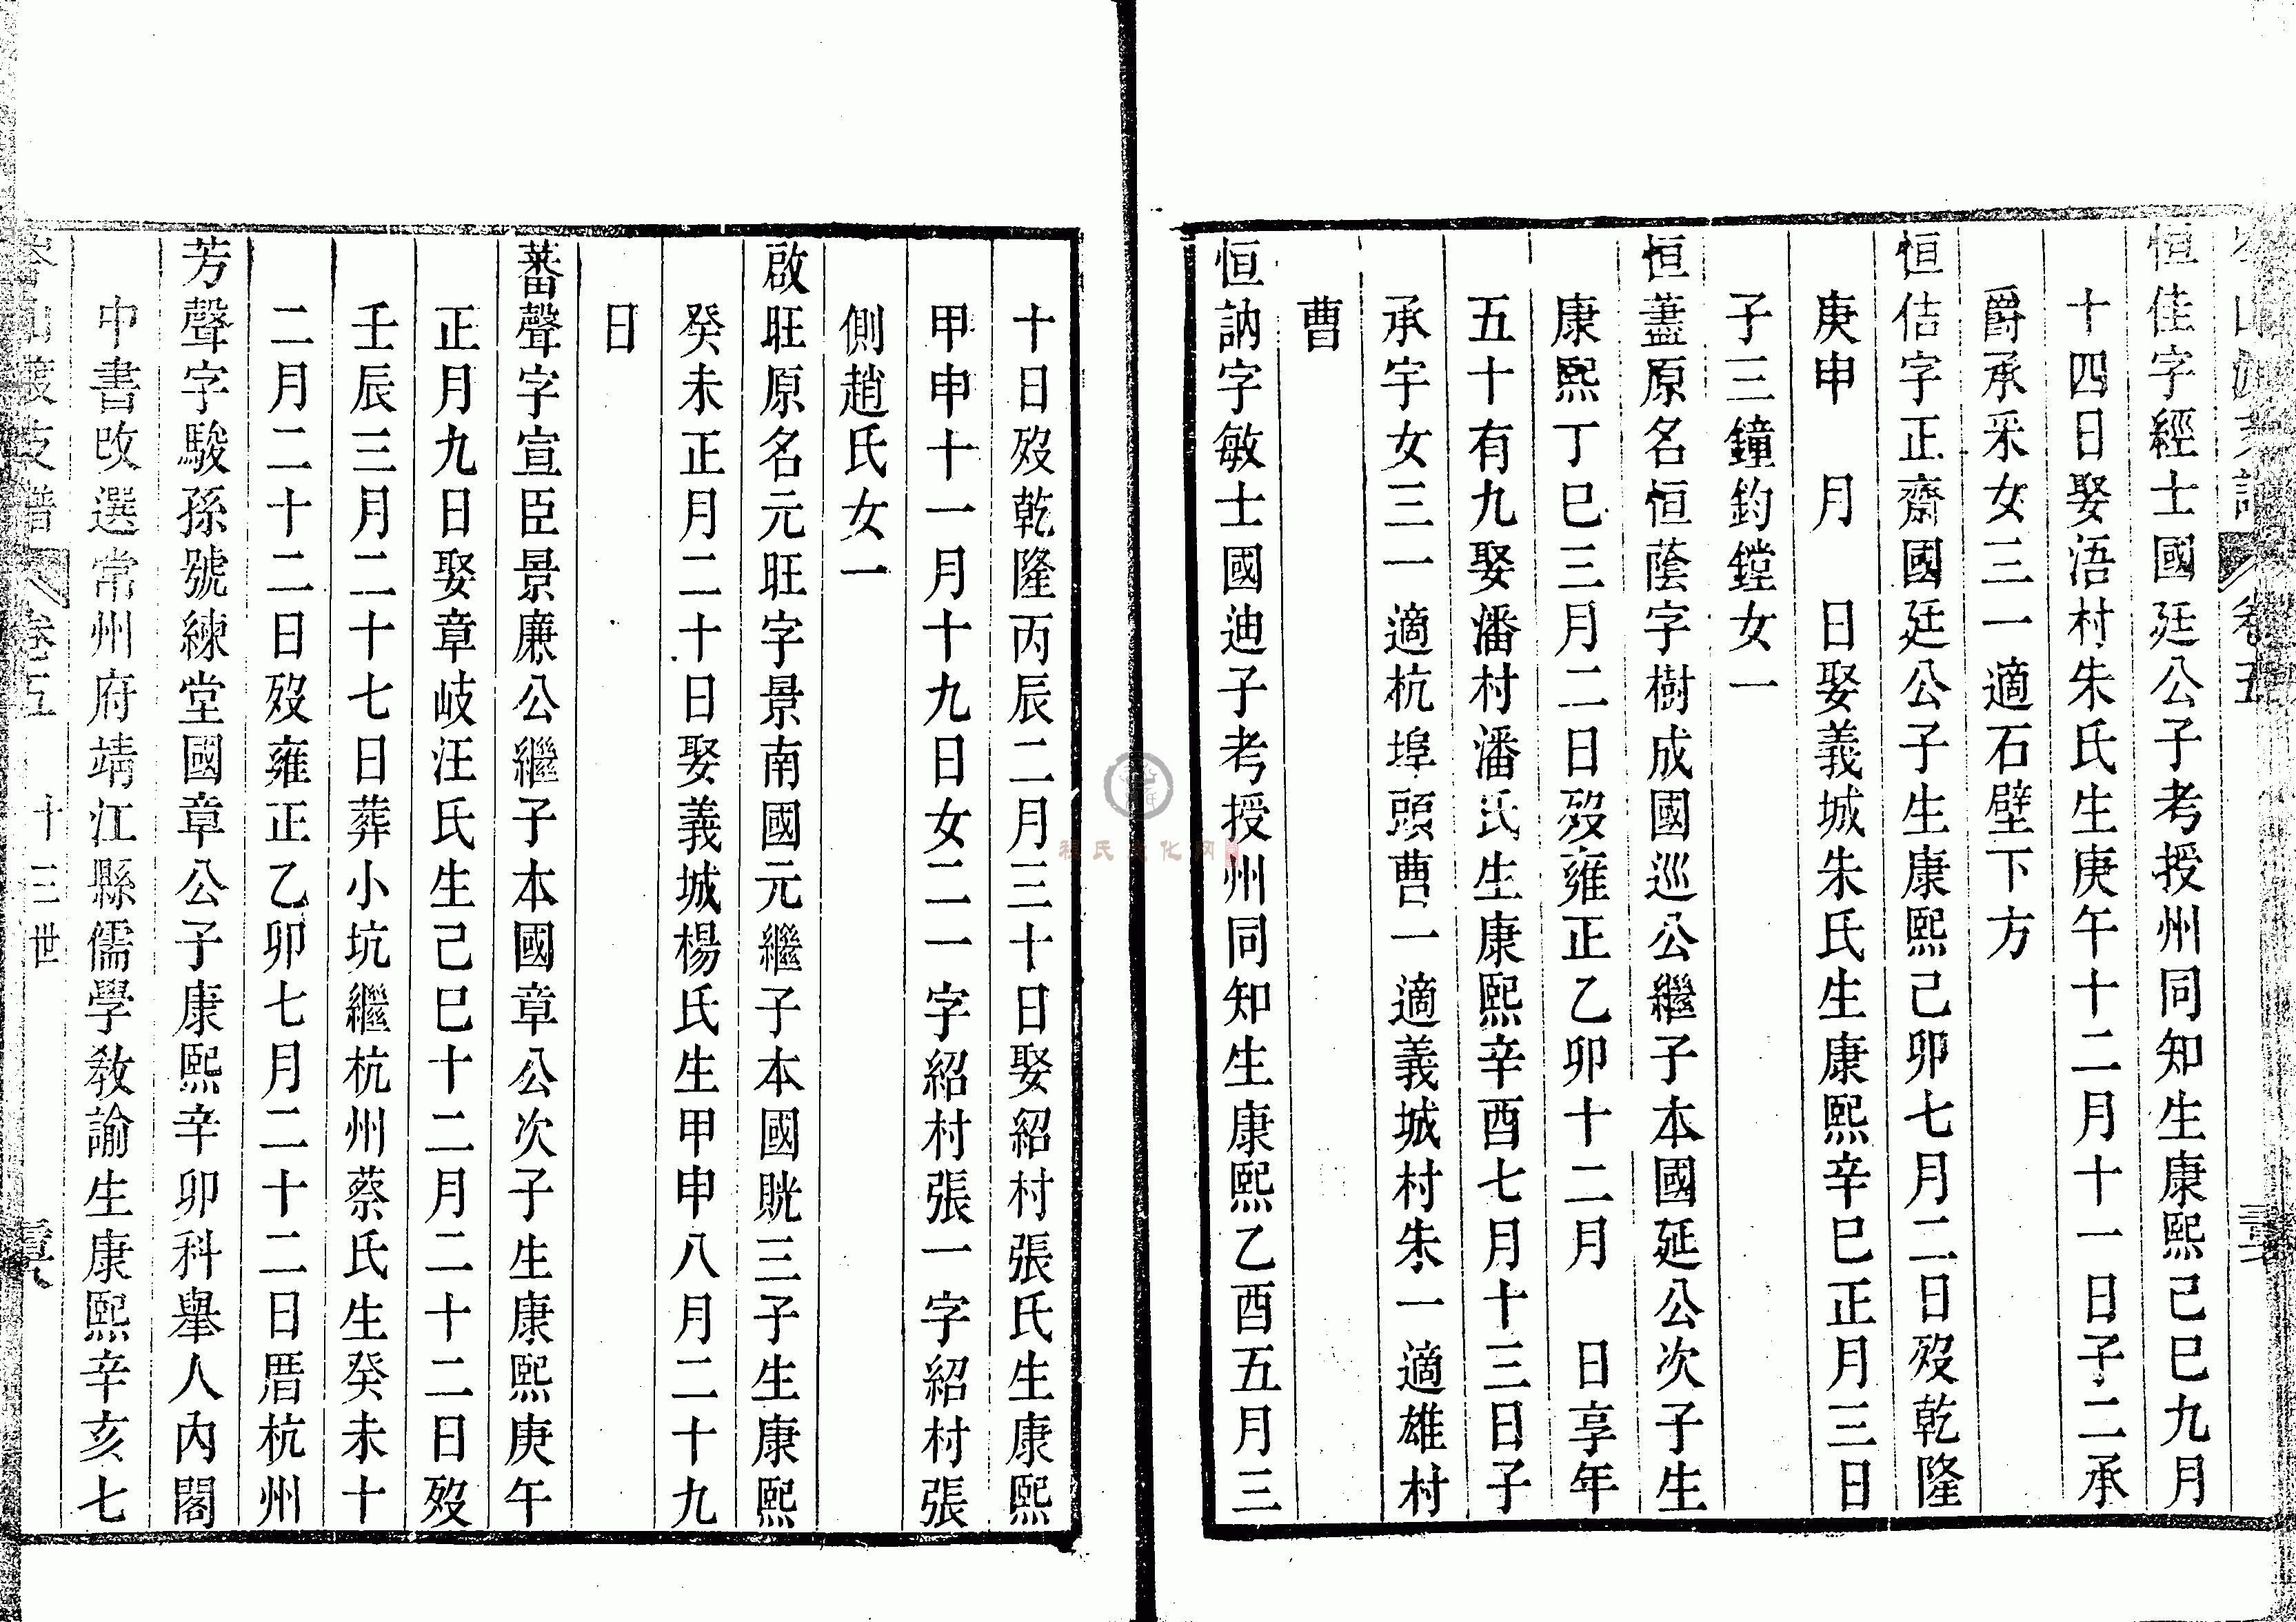 卷五
恒佳字經士國廷公子考授州同知生康熙己巳九月
十四日娶浯村朱氏生庚午十二月十一日子二承
爵承釆女三一適石壁下方
恒佶字正齋國廷公子生康熙己卯七月二日歿乾隆
庚申　月　日娶義城朱氏生康熙辛巳正月三日
子三鐘鈞鏜女一
恒藎原名恒蔭字樹成國巡公繼子本國延公次子生
康熙丁巳三月二日歿雍正乙卯十二月　日享年
五十有九娶潘村潘氏生康熙辛酉七月十三日子
承宇女三一適杭埠頭曹一適義城村朱一適雄村
曹
恒訥字敏士國迪子考授州同知生康熙乙酉五月三
十日歿乾隆丙辰二月三十日娶紹村張氏生康熙
甲申十一月十九日女二一字紹村張一字紹村張
側趙氏女一
啟旺原名元旺字景南國元繼子本國晄三子生康熙
癸未正月二十日娶義城楊氏生甲申八月二十九
日
蕃聲字宣臣景廉公繼子本國章公次子生康熙庚午
正月九日娶章岐汪氏生己巳十二月二十二日歿
壬辰三月二十七日葬小坑繼杭州蔡氏生癸未十
二月二十二日歿雍正乙卯七月二十二日厝杭州
芳聲字駿孫號練堂國章公子康熙辛卯科舉人內閣
中書改選常州府靖江縣儒學教諭生康熙辛亥七
山渡支譜　卷五　十三世
程氏文化网